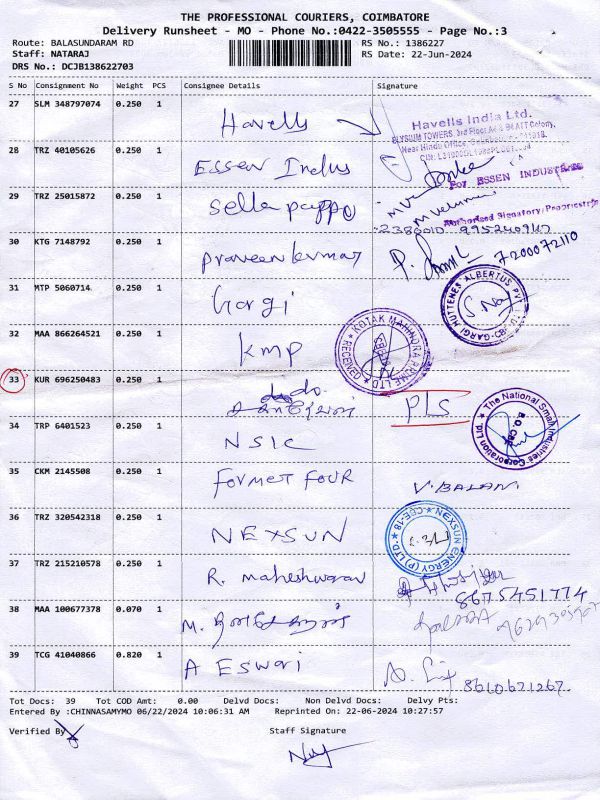 THE PROFESSIONAL COURIERS, COIMBATORE
Delivery Runsheet - MO - Phone No.:0422-3505555 - Page No.:3
Route: BALASUNDARAM RD
RS No.: 1386227
Staff: NATARAJ
RS Date: 22-Jun-2024
DRS No.: DCJB138622703
S No Consignment No Weight PCS Consignee Details Signature
27 SLM 348797074 0.250 1 Havells
Havells India Ltd.
28 TRZ 40105626 0.250 1 Essen Indus
For ESSEN INDUSTRIES
29 TRZ 25015872 0.250 1 Sella pappa
Authorised Signatory/Proprietrix
30 KTG 7148792 0.250 1 praveen kumar
7200072110
31 MTP 5060714 0.250 1 Gargi
GARGI HUTTENES ALBERTUS PVT. LTD.
32 MAA 866264521 0.250 1 KMP
KOTAK MAHINDRA PRIME LTD RECEIVED
33 KUR 696250483 0.250 1 do
PLS
34 TRP 6401523 0.250 1 NSIC
The National Small Industries Corporation Ltd
B.O. CBE
35 CKM 2145508 0.250 1 FORMET FOUR V. BALAN
36 TRZ 320542318 0.250 1 NEXSUN
NEXSUN ENERGY (P) LTD CBE-18
37 TRZ 215210578 0.250 1 R. maheshwaran
8675451774
38 MAA 100677378 0.070 1 M.
39 TCG 41040866 0.820 1 A ESWARI
8610671267
Tot Docs: 39 Tot COD Amt: 0.00 Delvd Docs: Non Delvd Docs: Delvy Pts:
Entered By :CHINNASAMYMO 06/22/2024 10:06:31 AM Reprinted On: 22-06-2024 10:27:57
Verified By
Staff Signature